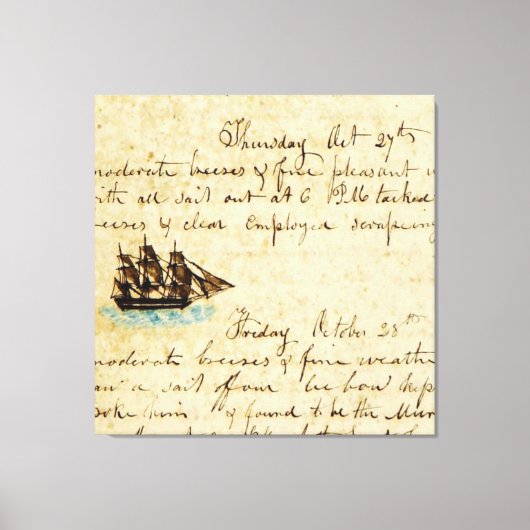 Thursday Oct 27th
moderate breezes & fine pleasant
with all sail out at 6 PM tacked
eezes & clear Employed scrapeing
Friday October 28th
moderate breezes & fine weathe
aw a sail of our lee bow kep
poke him & found to be the